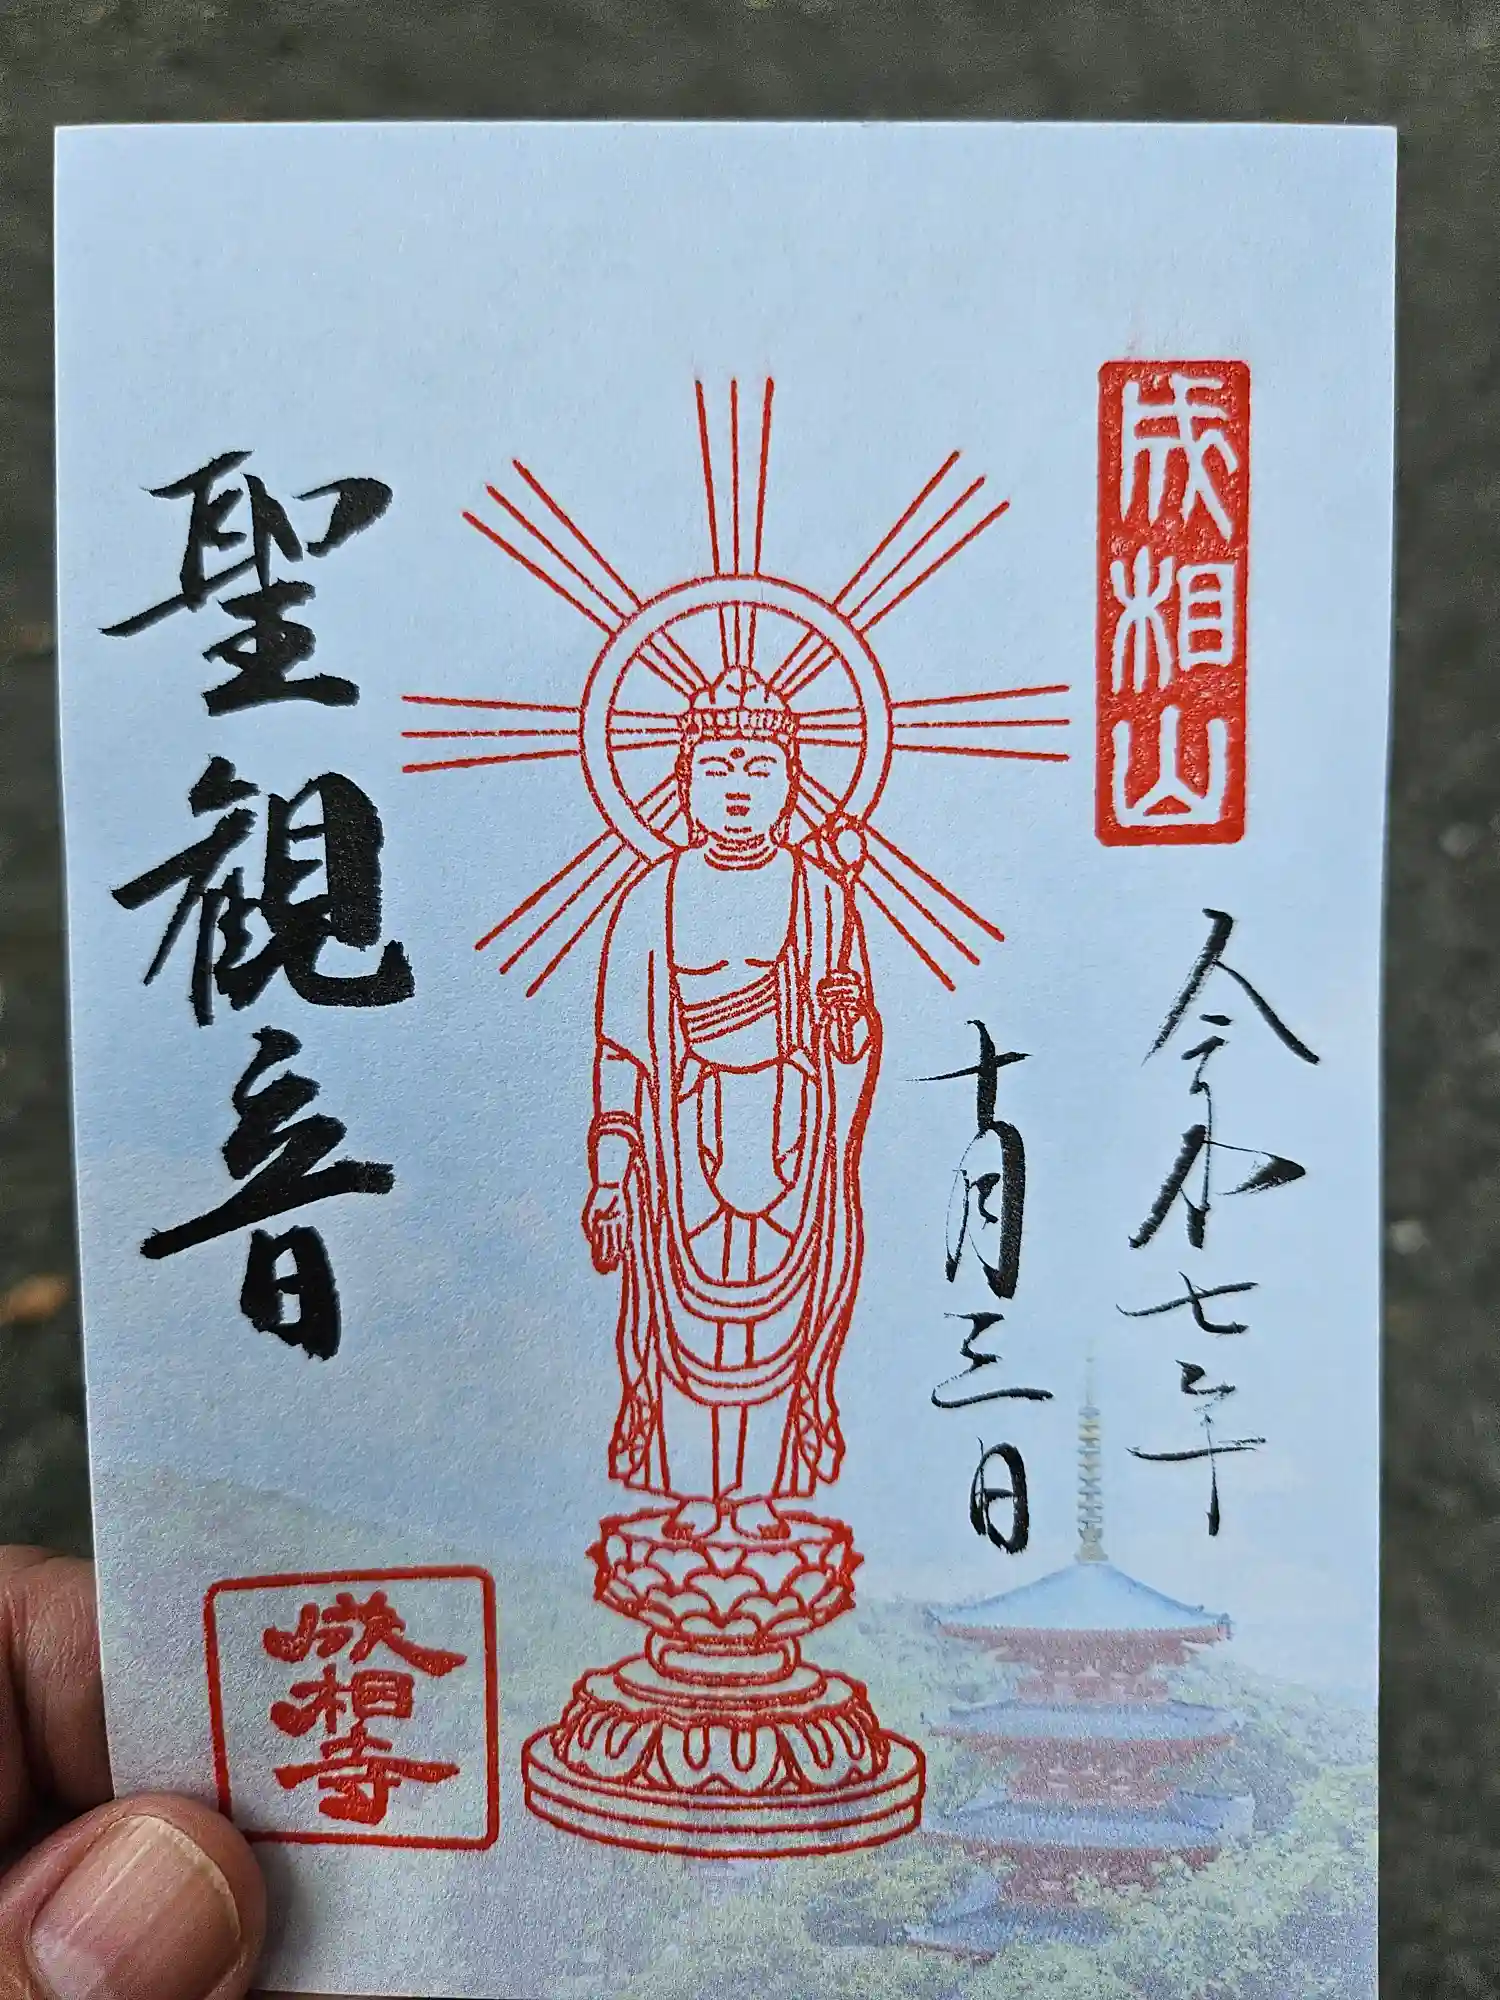 成相山
令和七年
十月三日
聖観音
成相寺